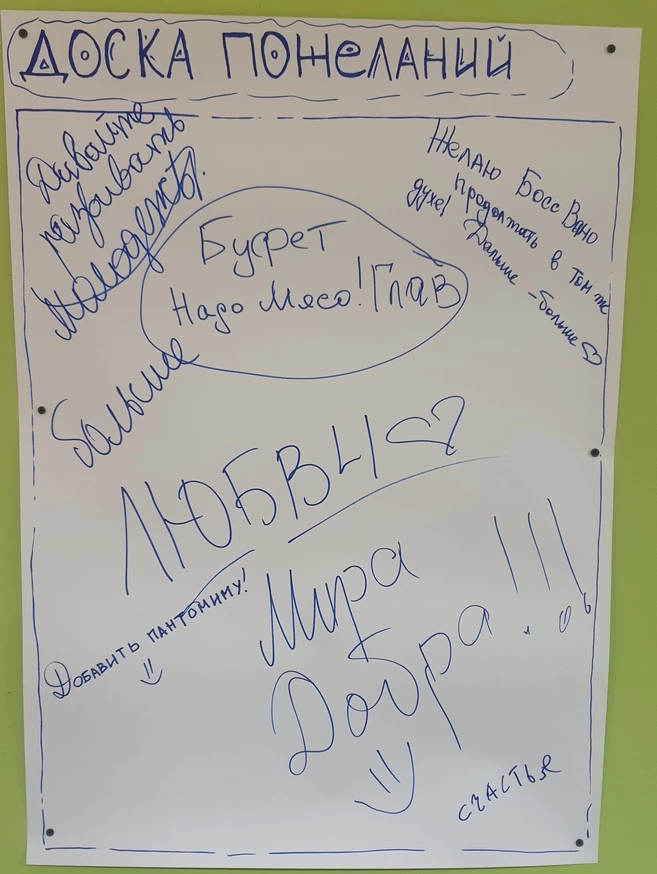 ДОСКА ПОЖЕЛАНИЙ
Давайте
развивать
молодежь!
Желаю Босс Вано
продолжать в том же
духе! Дальше - больше
Буфет
Надо Мясо! Глав
больше
ЛЮБВИ
Добавить пантомиму!
Мира
Добра!!!
счастья